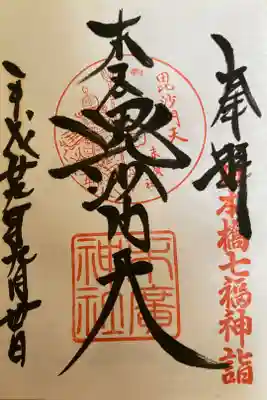 奉拝
日本橋七福神詣
毘沙門天
末廣神社
末廣
毘沙門天
末廣
神社
平成廿年九月廿日